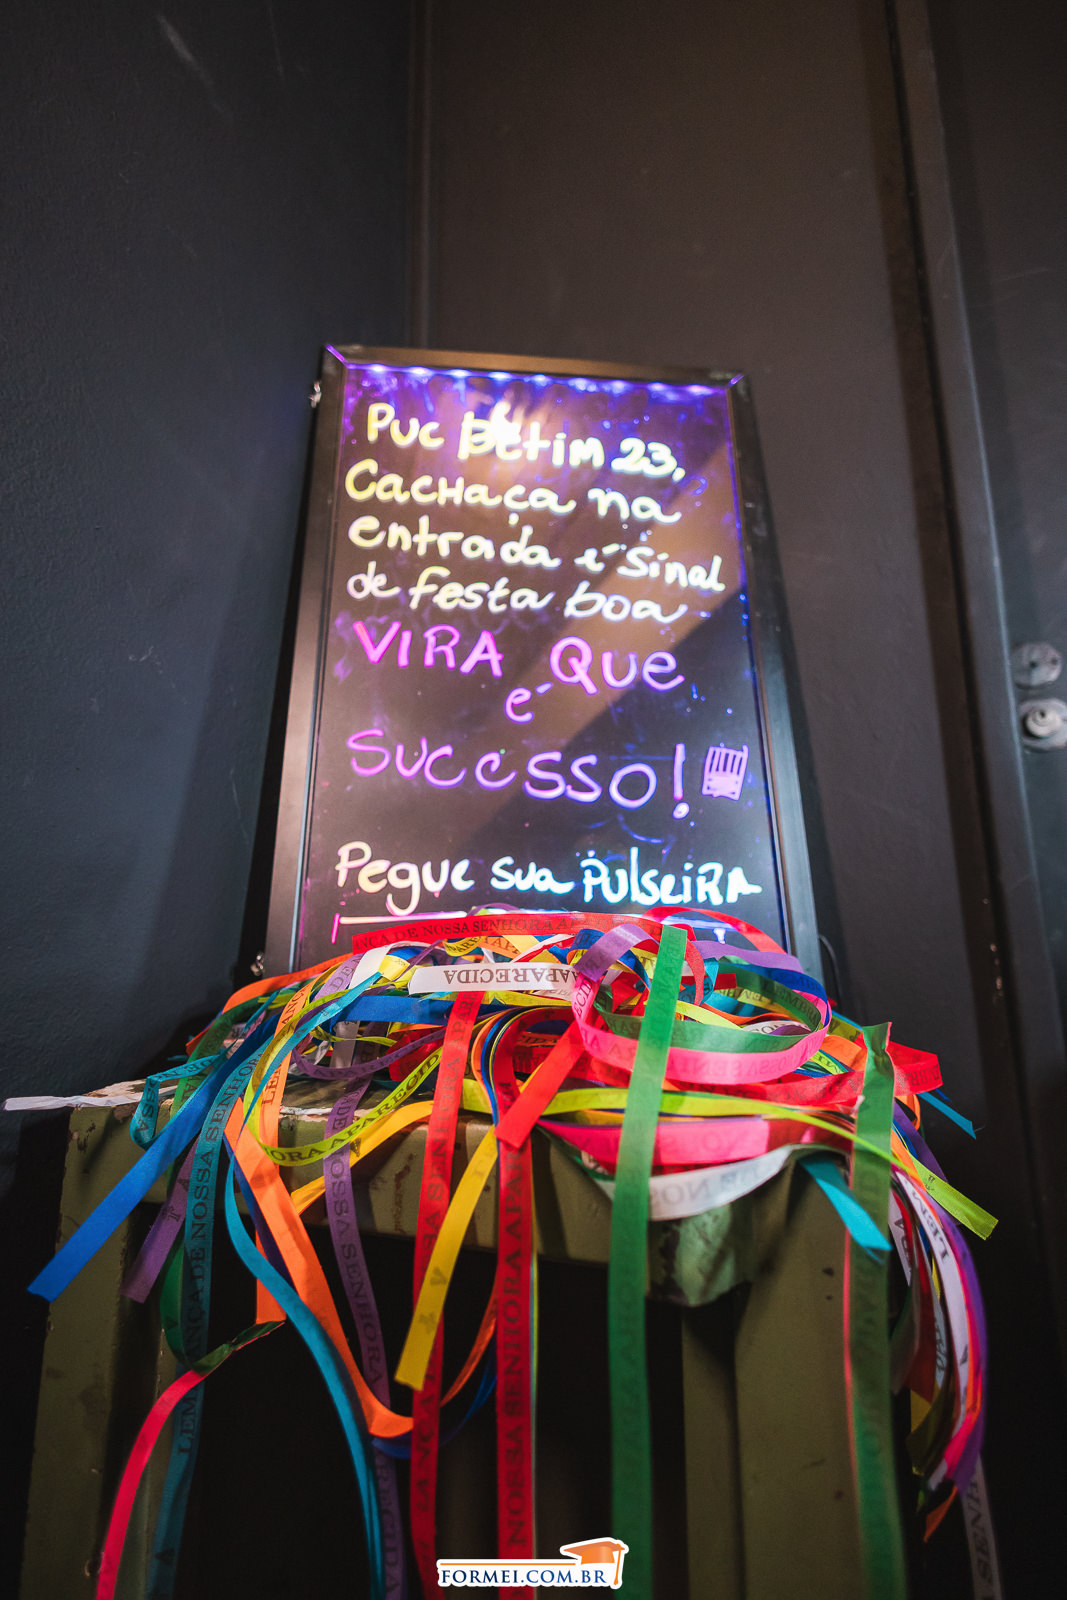 Puc Betim 23,
Cachaça na
entrada é sinal
de festa boa
VIRA QUE
é
SUCESSO!
Pegue sua PulseiRA
NÇA DE NOSSA SENHORA A
APARECIDA
APARECIDA
NOSSA SENHORA APAR
LEMBRANÇA DE NOSSA SENHORA
DE NOSSA SENHORA
ORA APARECID
FORMEI.COM.BR